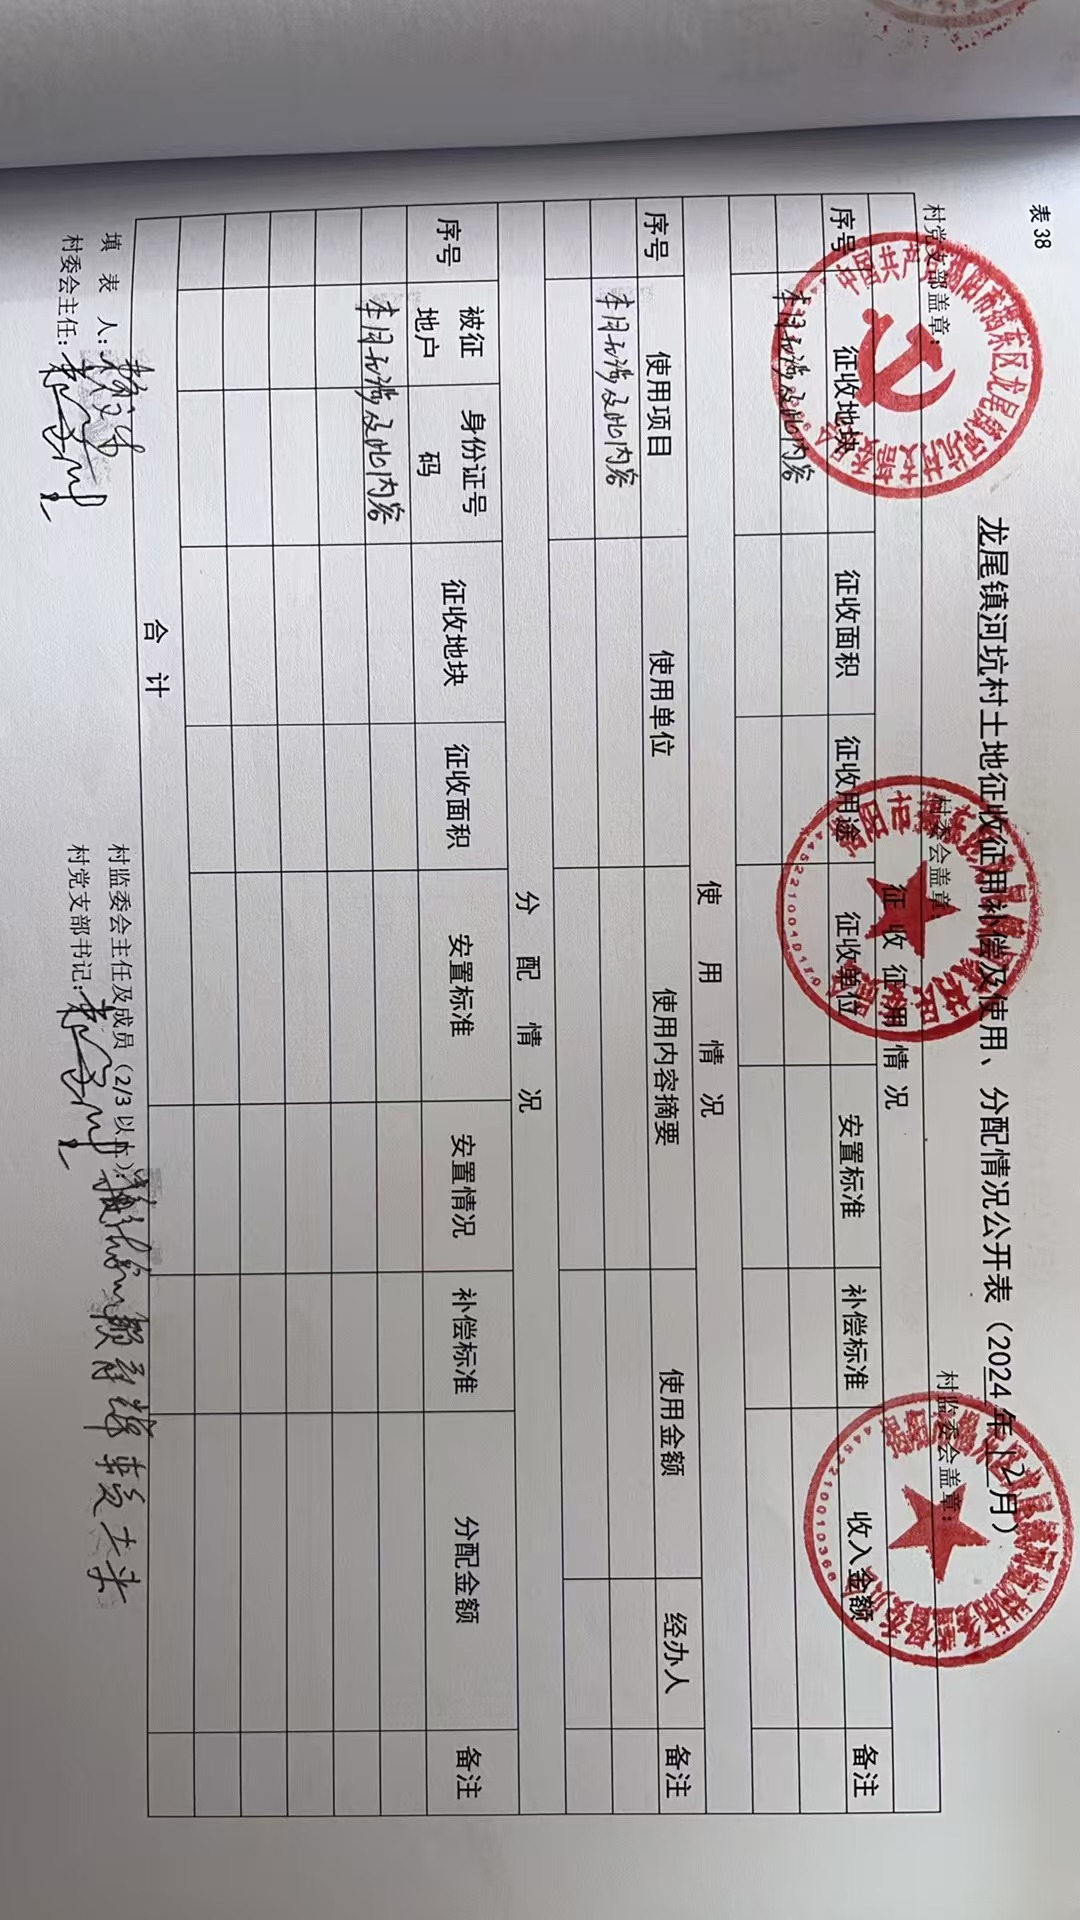 表 38
龙尾镇河坑村土地征收征用补偿及使用、分配情况公开表（2024 年 12 月）
村党支部盖章： 村委会盖章： 村监委会盖章：
征 收 征 用 情 况
序号 征收地块 征收面积 征收用途 征收单位 安置标准 补偿标准 收入金额 备注
本月无涉及此内容
使 用 情 况
序号 使用项目 使用单位 使用内容摘要 使用金额 经办人 备注
本月无涉及此内容
分 配 情 况
序号 被征地户 身份证号码 征收地块 征收面积 安置标准 安置情况 补偿标准 分配金额 备注
本月无涉及此内容
合 计
填 表 人： 村监委会主任及成员（2/3 以上）：
村委会主任： 村党支部书记：